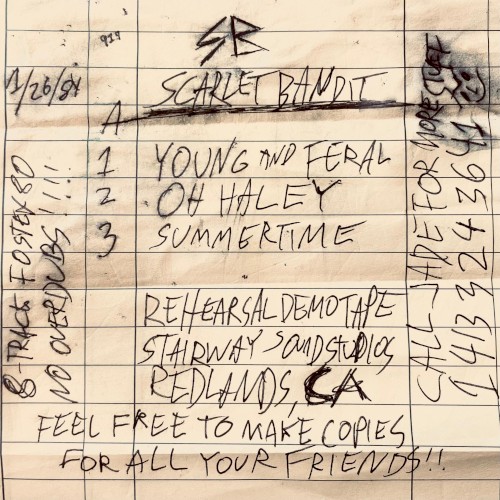 SB
919
1/26/84
SCARLET BANDIT
A
1 YOUNG AND FERAL
2 OH HALEY
3 SUMMERTIME
REHEARSAL DEMO TAPE
STAIRWAY SOUND STUDIOS
REDLANDS, CA
FEEL FREE TO MAKE COPIES
FOR ALL YOUR FRIENDS!!
8-TRACK FOSTEX 80
NO OVERDUBS!!!!
CALL JADE FOR MORE
1 413 3243641